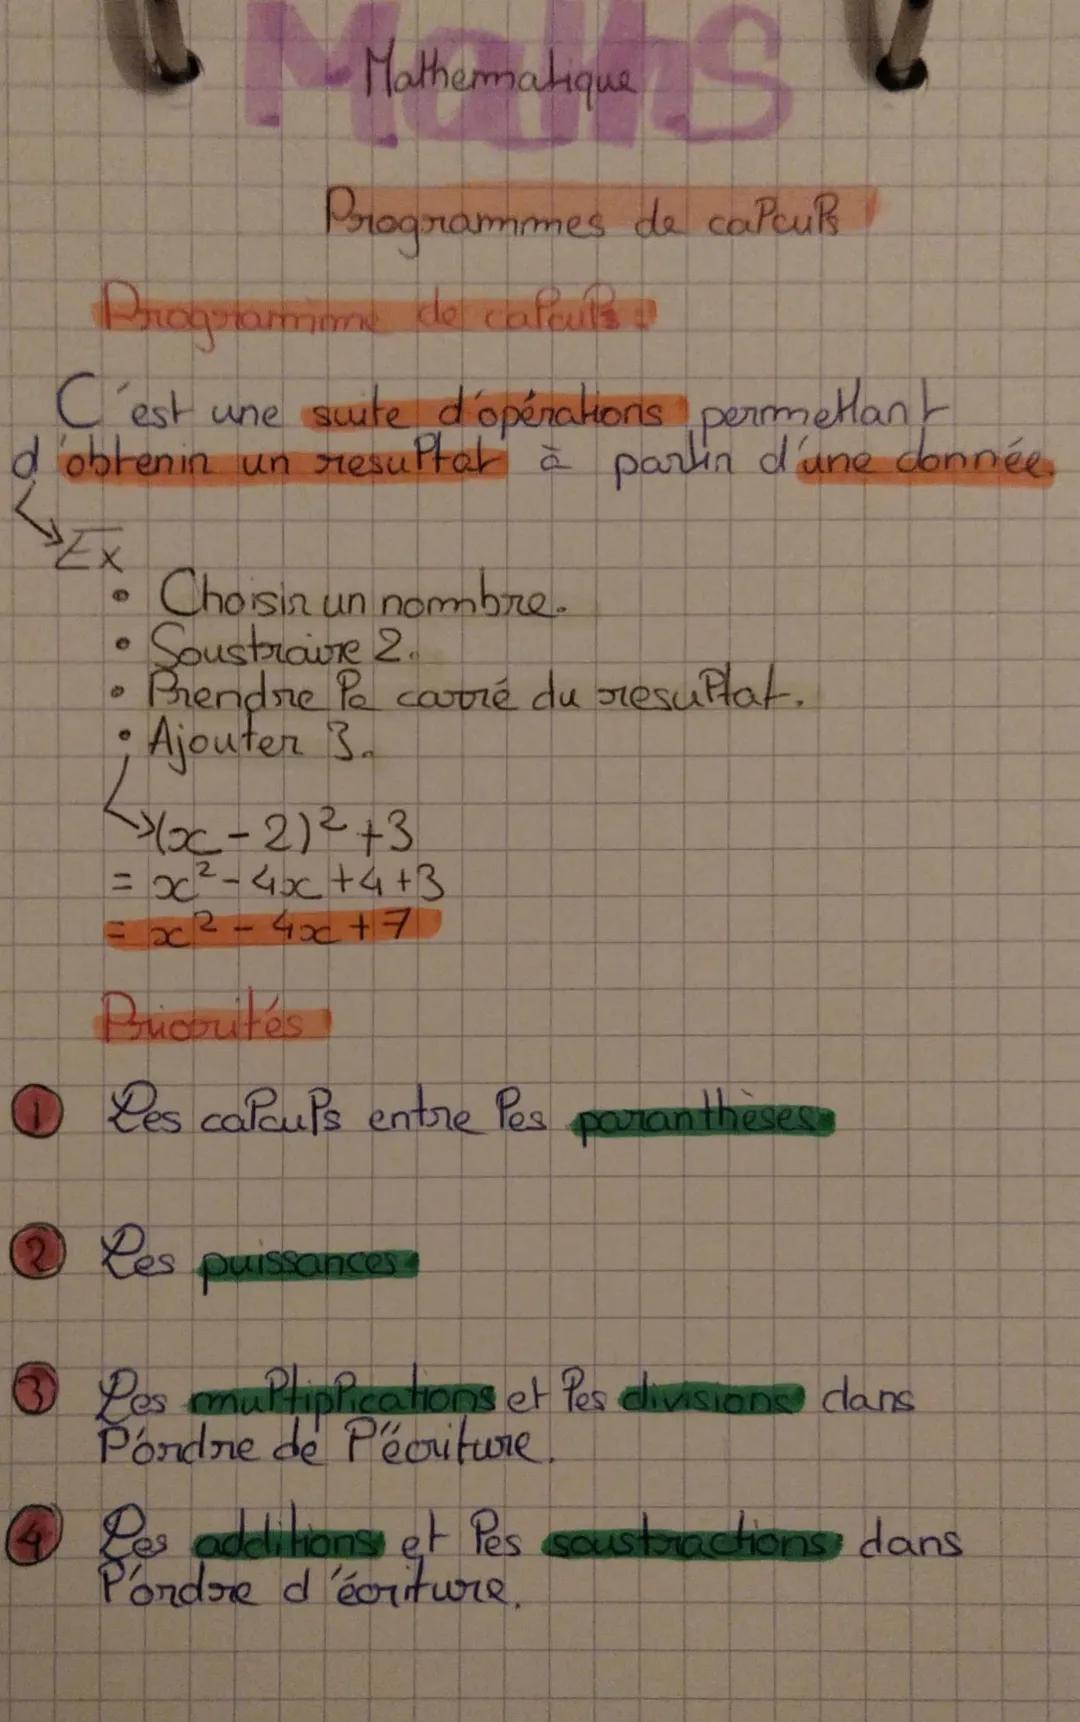 Maths
Mathematique
Programmes de calculs
Programme de calculs :
C'est une suite d'opérations permettant
d'obtenir un resultat à partir d'une donnée.
Ex
• Choisir un nombre.
• Soustraire 2.
• Prendre le carré du resultat.
• Ajouter 3.
(x-2)²+3
= x²-4x+4+3
= x²-4x+7
Priorités
1 Les calculs entre les paranthèses.
2 Les puissances.
3 Les multiplications et les divisions dans
l'ordre de l'écriture.
4 Les additions et les soustractions dans
l'ordre d'écriture.